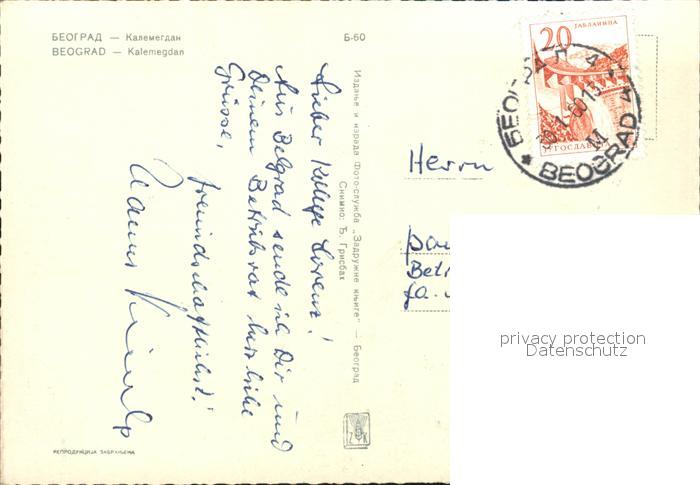 БЕОГРАД — Калемегдан
BEOGRAD — Kalemegdan
Б-60
20
ЈАБЛАНИЦА
ЈУГОСЛАВИЈА
БЕОГРАД 4
BEOGRAD 4
Издање и израда Фото-служба „Задружне књиге" — Београд
Снимио: Ђ. Грисбах
Lieber Kollege Lorenz!
Aus Belgrad sende ich Dir und
Deinem Betriebsrat herzliche
Grüsse,
freundschaftlichst!
Herrn
Betr
Fa.
РЕПРОДУКЦИЈА ЗАБРАЊЕНА
privacy protection
Datenschutz